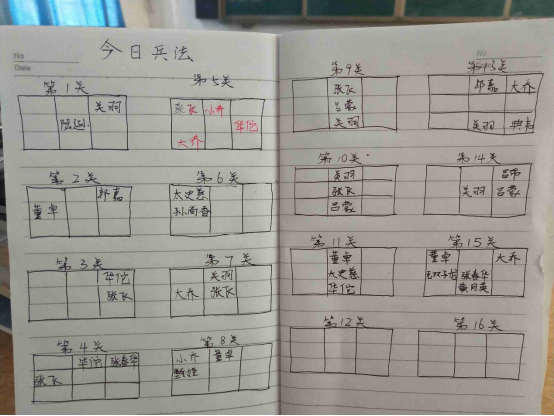 No
Date
今日兵法
第1关
关羽
陆逊
第2关
郭嘉
董卓
第3关
华佗
张飞
第4关
华佗 张春华
张飞
第5关
张飞 小乔
华佗
大乔
第6关
太史慈
孙尚香
第7关
关羽
大乔 张飞
第8关
小乔 董卓
甄姬
No
第9关
张飞
吕蒙
关羽
第10关
关羽
张飞
吕蒙
第11关
董卓
太史慈
华佗
第12关
第13关
郭嘉 大乔
关羽 典韦
第14关
吕布
关羽 吕蒙
第15关
董卓 大乔
张春华
黄月英
第16关